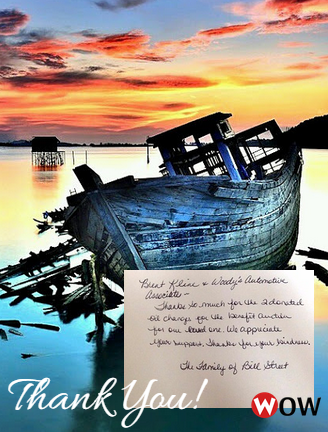 Brent Kline & Woody's Automotive
Associates -
Thanks so much for the 2 donated
oil changes for the benefit auction
for our loved one. We appreciate
your support. Thanks for your kindness.
The Family of Bill Street
Thank You!
WOW